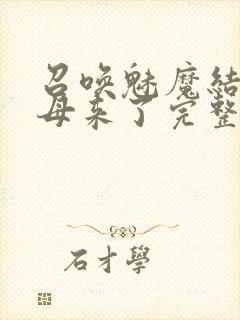 召唤魅魔结
母来了完整
石才學